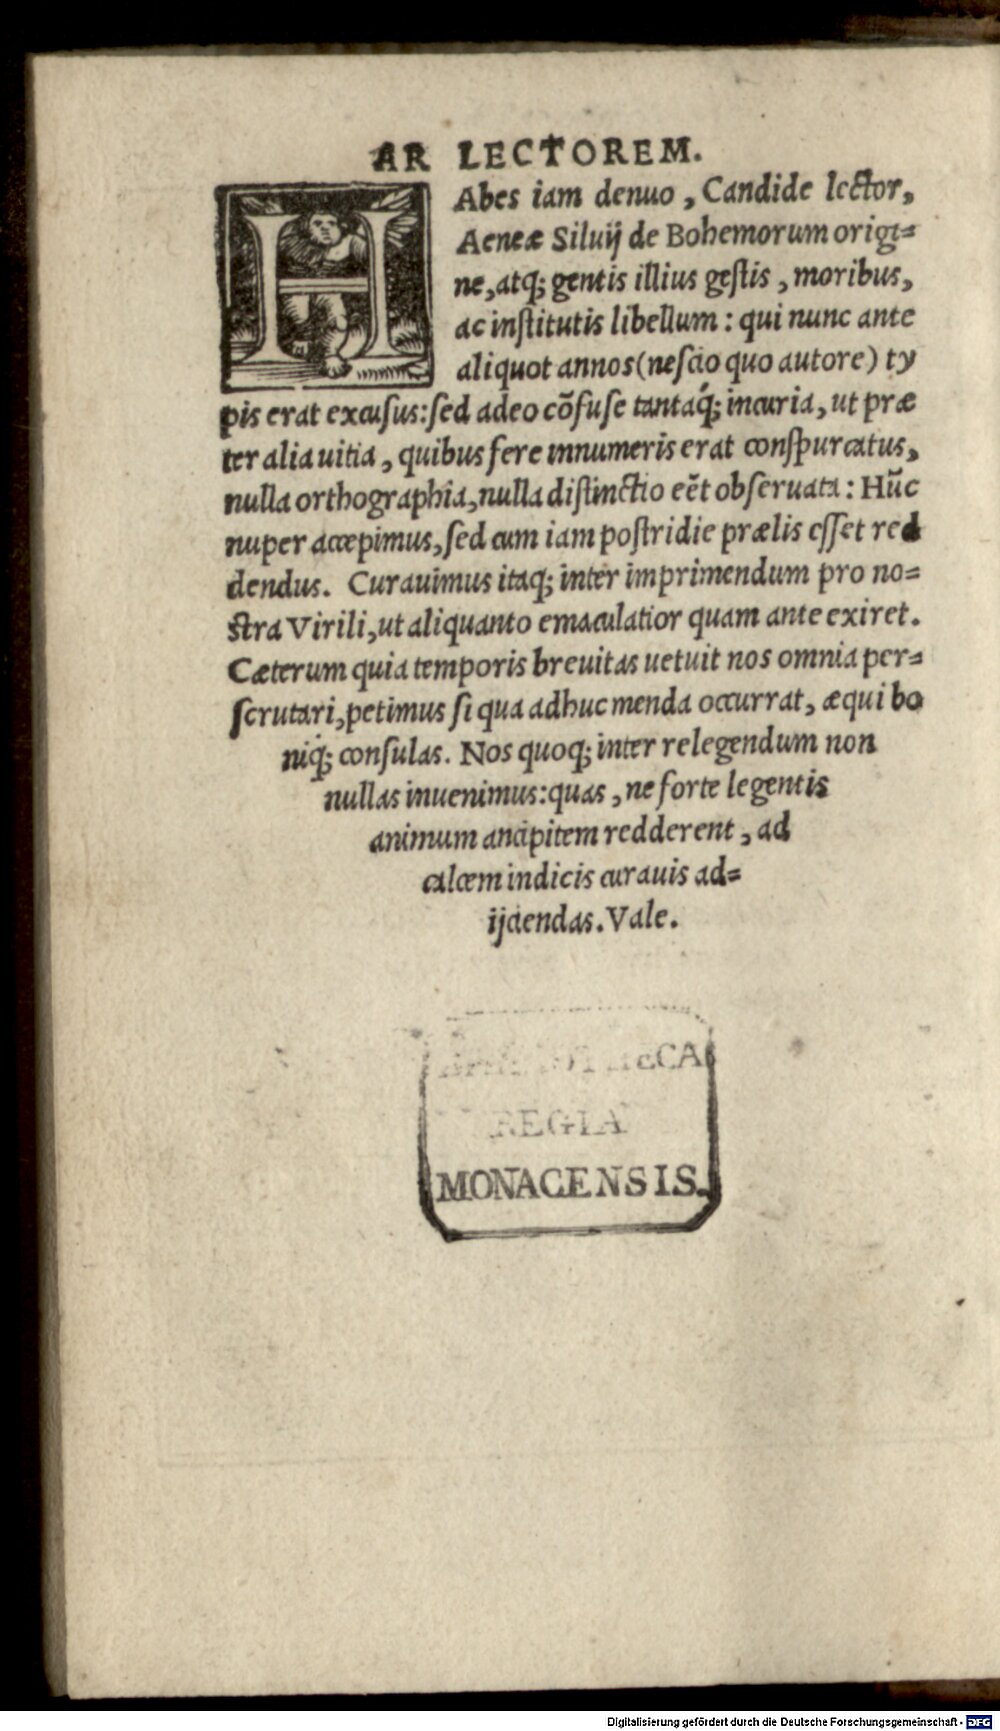 AR LECTOREM.
HAbes iam denuo, Candide lector,
Aeneæ Siluij de Bohemorum origi=
ne, atq; gentis illius gestis, moribus,
ac institutis libellum: qui nunc ante
aliquot annos (nescio quo autore) ty
pis erat excusus: sed adeo cõfuse tantaq́; incuria, ut præ
ter alia uitia, quibus fere innumeris erat conspurcatus,
nulla orthographia, nulla distinctio eẽt obseruata: Hũc
nuper accepimus, sed cum iam postridie prælis esset red
dendus. Curauimus itaq; inter imprimendum pro no=
stra Virili, ut aliquanto emaculatior quam ante exiret.
Cæterum quia temporis breuitas uetuit nos omnia per=
scrutari, petimus si qua adhuc menda occurrat, æqui bo
niq; consulas. Nos quoq; inter relegendum non
nullas inuenimus: quas, ne forte legentis
animum ancipitem redderent, ad
calcem indicis curauis ad=
ijciendas. Vale.
BIBLIOTHECA
REGIA
MONACENSIS.
Digitalisierung gefördert durch die Deutsche Forschungsgemeinschaft - DFG